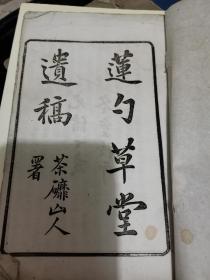 蓮勺草堂
遺稿
荼䕷山人
署